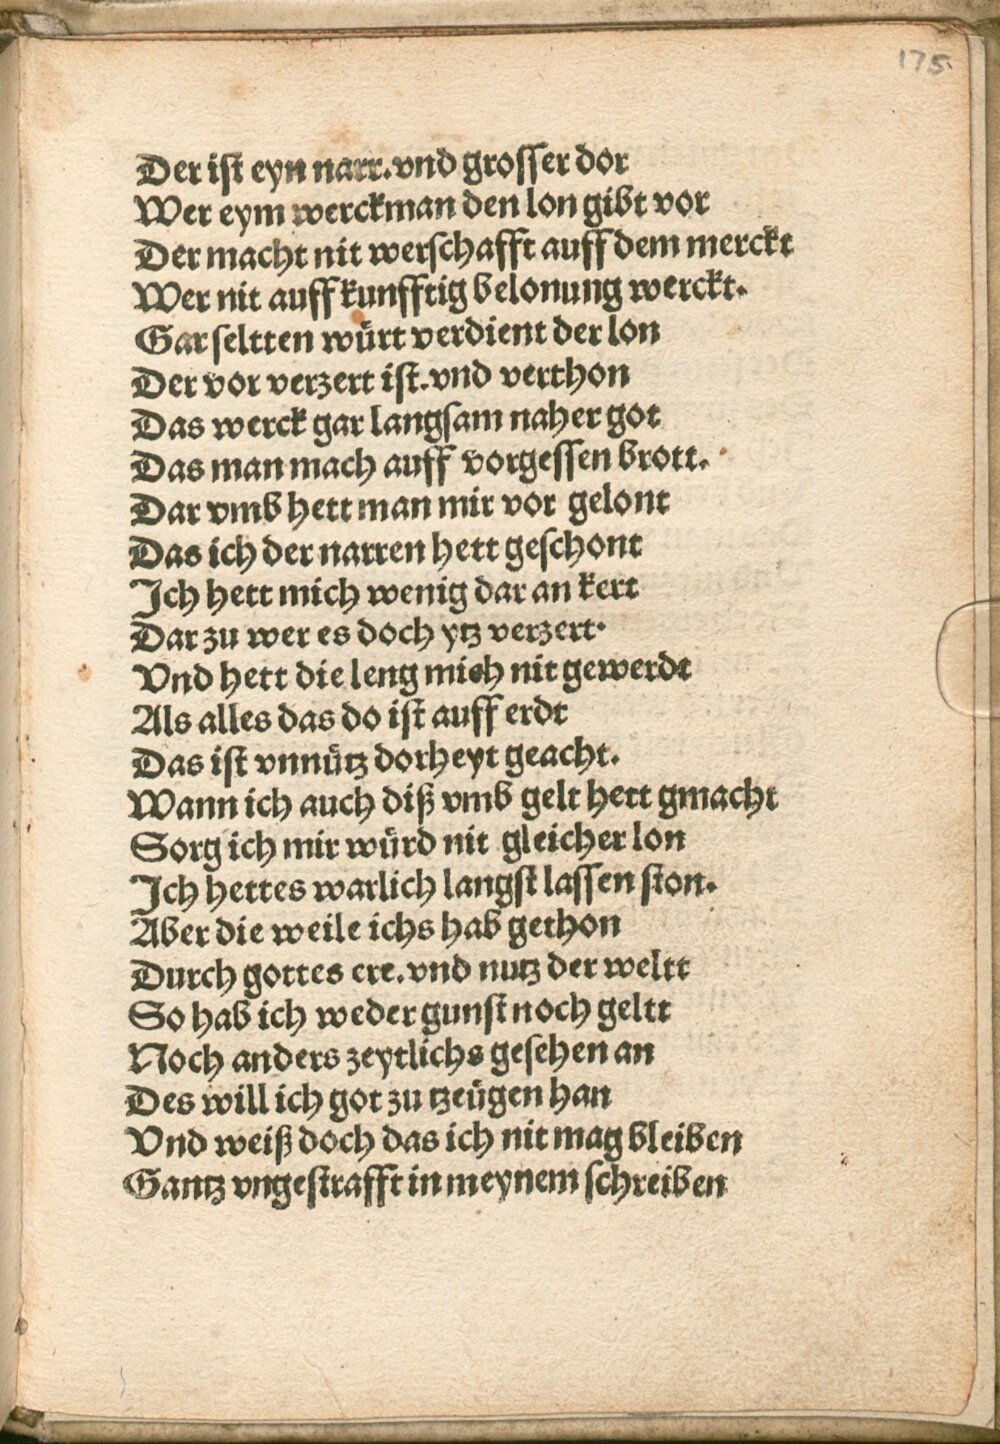 175.
Der ist eyn narr. vnd grosser dor
Wer eym werckman den lon gibt vor
Der macht nit werschafft auff dem merckt
Wer nit auff kunfftig belonung werckt.
Gar seltten würt verdient der lon
Der vor verzert ist. vnd verthon
Das werck gar langsam naher got
Das man mach auff vorgessen brott.
Dar vmb hett man mir vor gelont
Das ich der narren hett geschont
Ich hett mich wenig dar an kert
Dar zu wer es doch ytz verzert.
Vnd hett die leng mich nit gewerdt
Als alles das do ist auff erdt
Das ist vnnütz dorheyt geacht.
Wann ich auch diß vmb gelt hett gmacht
Sorg ich mir würd nit gleicher lon
Ich hettes warlich langst lassen ston.
Aber die weile ichs hab gethon
Durch gottes ere. vnd nutz der weltt
So hab ich weder gunst noch geltt
Noch anders zeytlichs gesehen an
Des will ich got zu tzeügen han
Vnd weiß doch das ich nit mag bleiben
Gantz vngestrafft in meynem schreiben